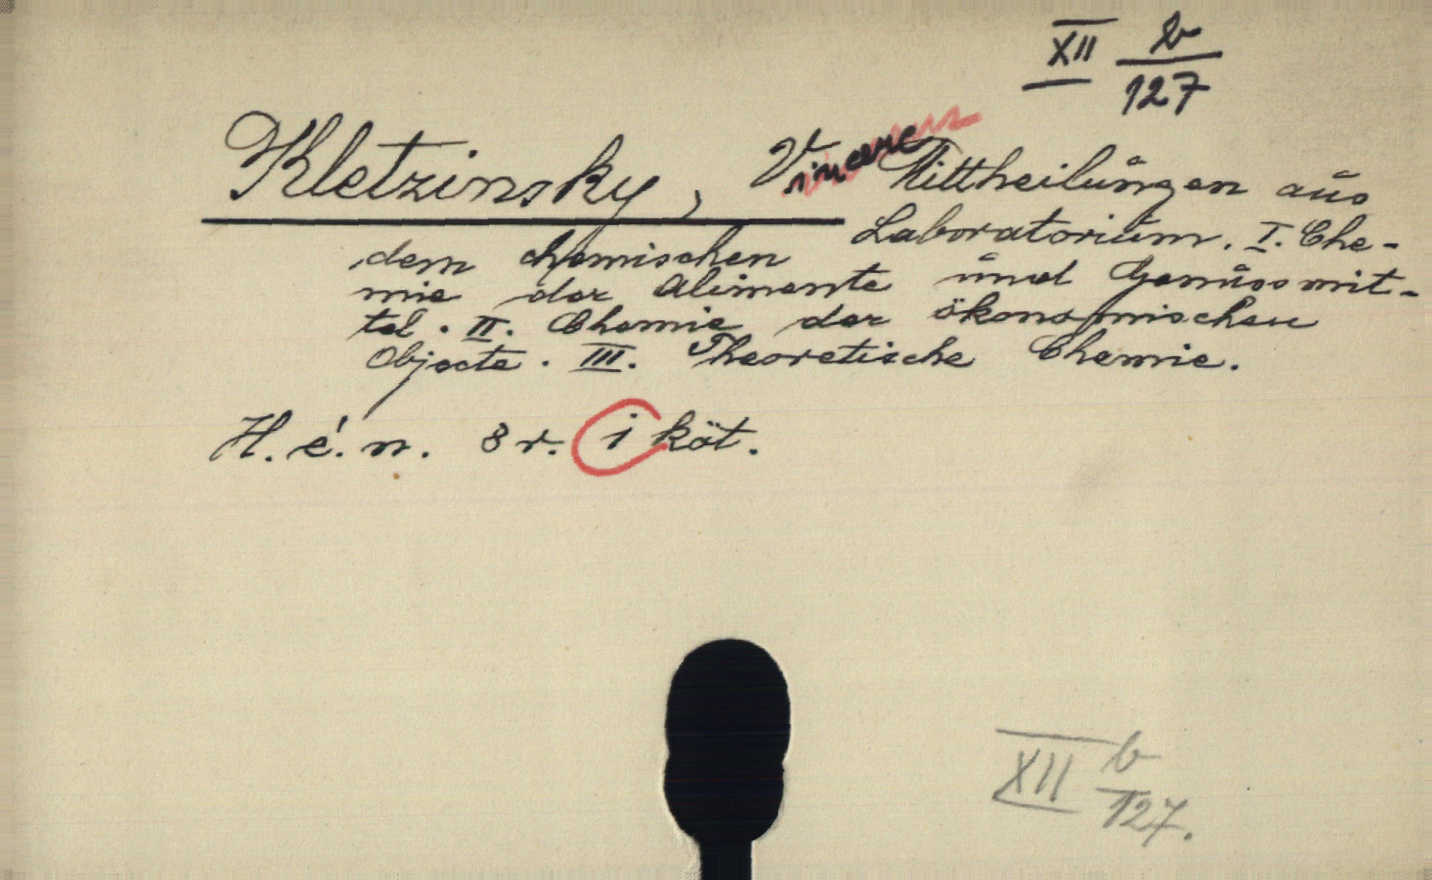 XII b/127
Kletzinsky, Vincenc Mittheilungen aus
dem chemischen Laboratorium. I. Che-
mie der Alimente und Genussmit-
tel. II. Chemie der ökonomischen
Objecte. III. Theoretische Chemie.
H. é. n. 8 r. 1 köt.
XII b/127.